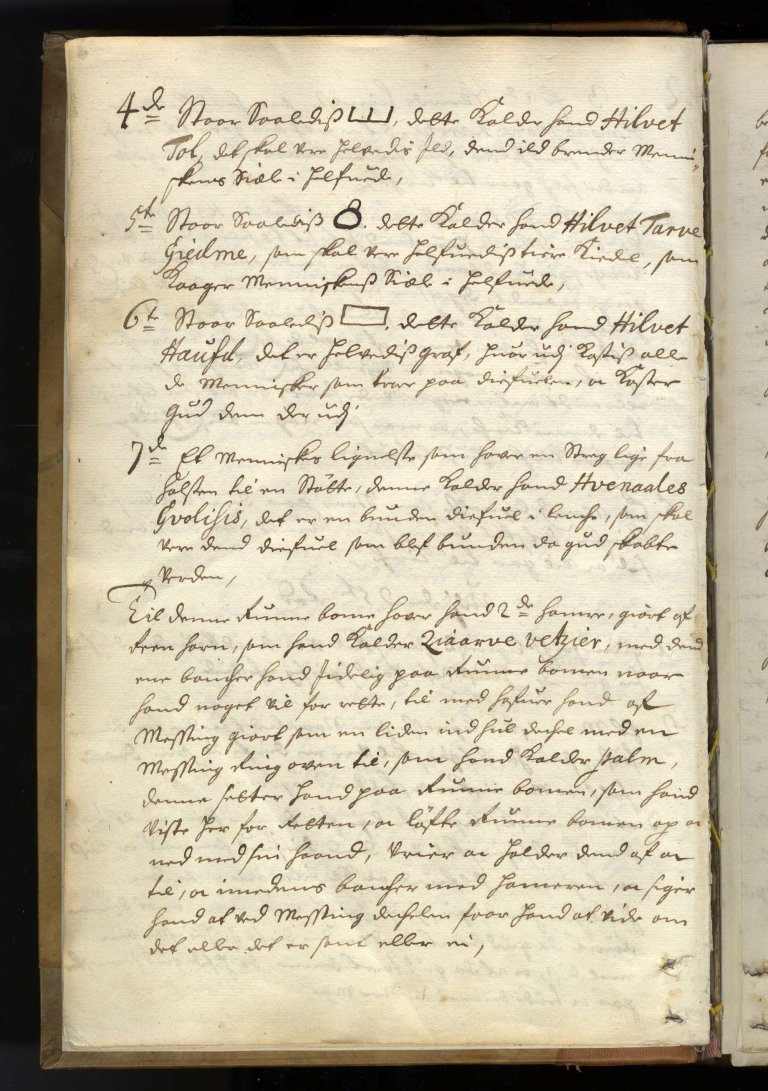 4de Staar Saalediß , dette Kalder hand Hilvet
Tol, det skal vere Helvedis Ild, dend ild brender Menni„
skens Siæl i Helfuede,
5te Staar Saalediß 8. dette Kalder hand Hilvet Tarve
Giedme, som skal vere Helfuediß tiere Kiedel, som
Kaager Menniskens Siæle i Helfuede,
6te Staar Saalediß , dette Kalder hand Hilvet
Haufd, det er Helvediß graf, huor udj Kastiß alle
de Mennisker som troer paa diefuelen, oc Kaster
Gud dem der udj
7de Et Menniskes lignelse som haver en Streg lige fra
halsen til en Stötte, denne Kalder hand Hvenaales
Gvolisis, det er en bunden diefuel i lencke, som skal
vere dend diefuel som blef bunden da gud skabte
Verden,
Til denne Runne bome haver hand 2de hamre, giort af
Reen horn, som hand Kalder Ziaarve vetzier, med dend
ene bancher hand sidelig paa Runne bomen naar
hand noget vil for rette, til med hafuer hand af
Messing giort som en liden indhul dechel med en
Messing Ring oven til, som hand Kalder palm,
denne setter hand paa Runne bomen, som hand
Viste her for Retten, oc löfte Runne bomen op oc
ned med sin haand, vrier oc holder dend af oc
til, oc imedens bancher med hameren, oc siger
hand at ved Messing dechelen faar hand at vide om
det eller det er sant eller ei,